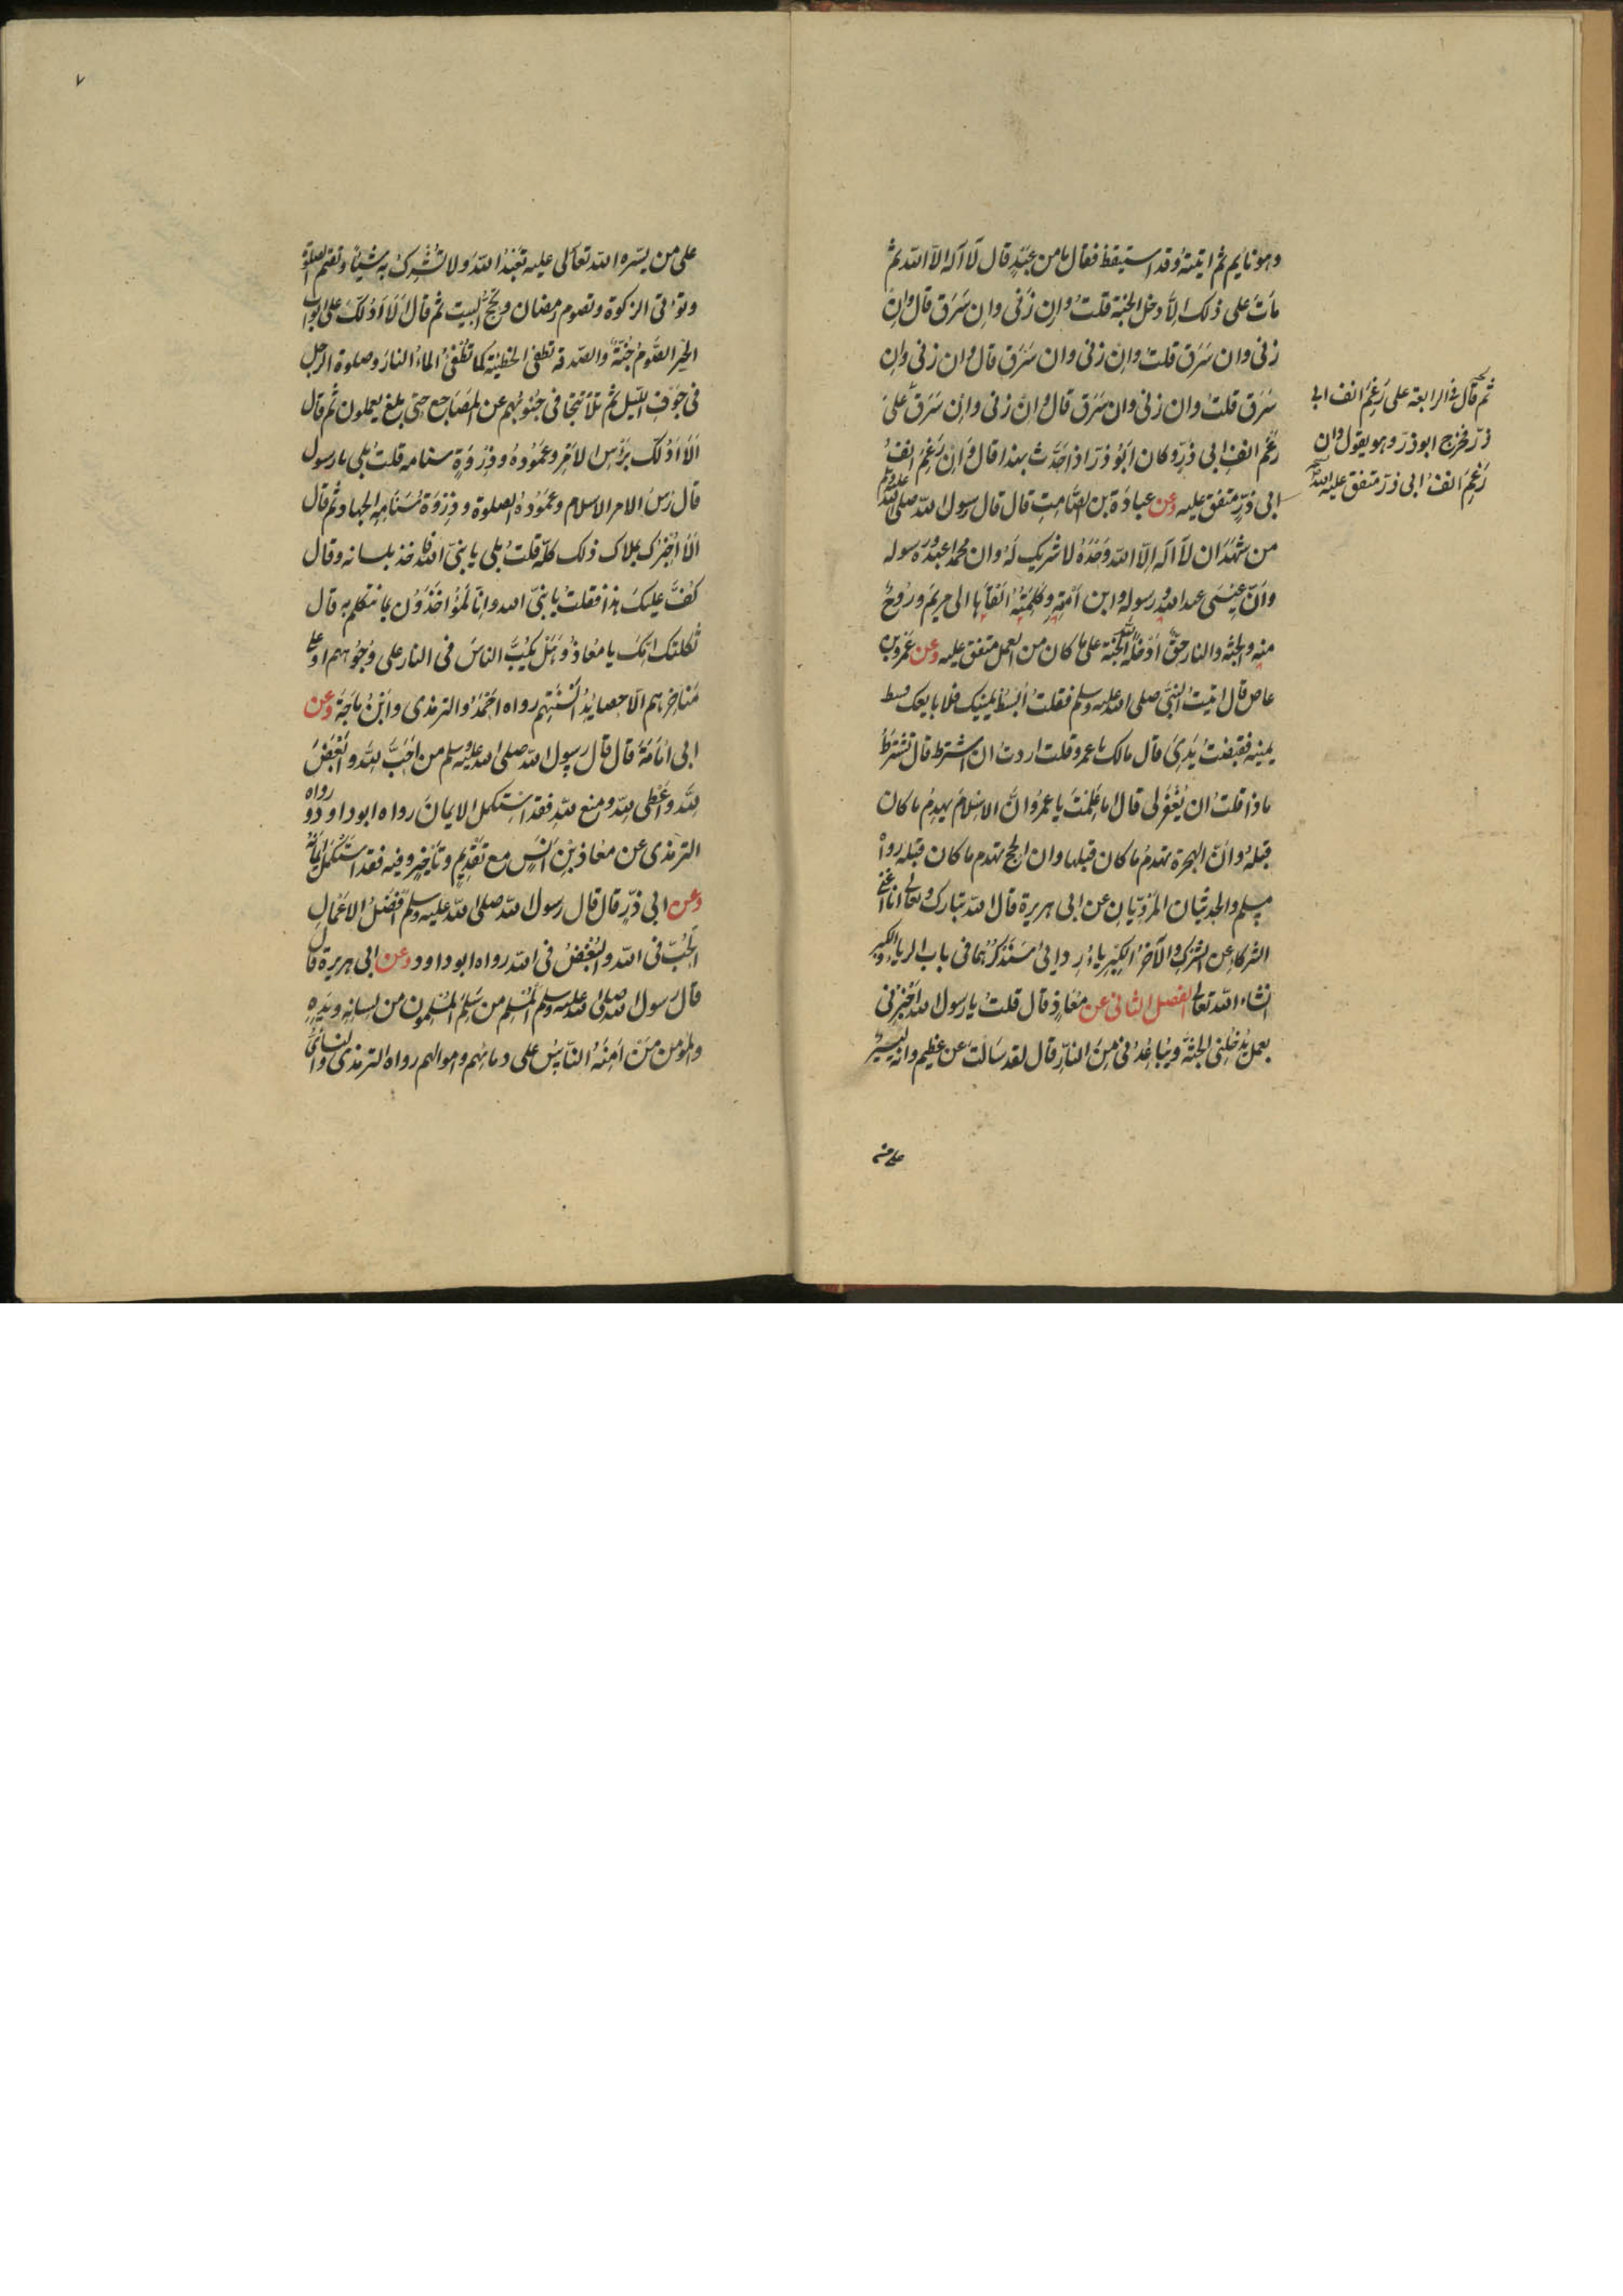 وهو نايم ثم اتيته وقد استيقظ فقال ما من عبد قال لا اله الا الله ثم
مات على ذلك الا دخل الجنة قلت وان زنى وان سرق قال وان
زنى وان سرق قلت وان زنى وان سرق قال وان زنى وان
سرق قلت وان زنى وان سرق قال وان زنى وان سرق على
رغم انف ابي ذر وكان ابو ذر اذا حدث بهذا قال وان رغم انف
ابي ذر متفق عليه وعن عبادة بن الصامت قال قال رسول الله صلى الله عليه وسلم
من شهد ان لا اله الا الله وحده لا شريك له وان محمدا عبده ورسوله
وان عيسى عبد الله ورسوله وابن امته وكلمته القاها الى مريم وروح
منه والجنة والنار حق ادخله الله الجنة على ما كان من العمل متفق عليه وعن عمرو بن
عاص قال اتيت النبي صلى الله عليه وسلم فقلت ابسط يمينك فلابايعك فبسط
يمينه فقبضت يدي قال مالك يا عمرو قلت اردت ان اشترط قال تشترط
ماذا قلت ان يغفر لي قال اما علمت يا عمرو ان الاسلام يهدم ما كان
قبله وان الهجرة تهدم ما كان قبلها وان الحج يهدم ما كان قبله رواه
مسلم والحديثان المرويان عن ابي هريرة قال الله تبارك وتعالى انا اغنى
الشركاء عن الشرك والآخر الكبرياء ردائي سنذكرهما في باب الرياء والكبر
انشاء الله تعالى الفصل الثاني عن معاذ قال قلت يا رسول الله اخبرني
بعمل يدخلني الجنة ويباعدني من النار قال لقد سالت عن عظيم وانه ليسير
على من
ثم قال في الرابعة على رغم انف ابي
ذر فخرج ابو ذر وهو يقول وان
رغم انف ابي ذر متفق عليه
٧
على من يسره الله تعالى عليه تعبد الله ولا تشرك به شيئا وتقيم الصلوة
وتوتي الزكوة وتصوم رمضان وتحج البيت ثم قال الا ادلك على ابواب
الخير الصوم جنة والصدقة تطفئ الخطيئة كما تطفئ الماء النار وصلوة الرجل
في جوف الليل ثم تلا تتجافى جنوبهم عن المضاجع حتى بلغ يعملون ثم قال
الا ادلك برؤس الامر وعموده وذروة سنامه قلت بلى يا رسول
قال رس الامر الاسلام وعموده الصلوة وذروة سنامه الجهاد ثم قال
الا اخبرك بملاك ذلك كله قلت بلى يا نبي الله فاخذ بلسانه وقال
كف عليك هذا فقلت يا نبي الله وانا لمؤاخذون بما نتكلم به قال
ثكلتك امك يا معاذ وهل يكب الناس في النار على وجوههم او على
مناخرهم الا حصايد السنتهم رواه احمد والترمذي وابن ماجة وعن
ابي امامة قال قال رسول الله صلى الله عليه وسلم من احب لله وابغض
لله واعطى لله ومنع لله فقد استكمل الايمان رواه ابو داود ورواه
الترمذي عن معاذ بن انس مع تقديم وتاخير وفيه فقد استكمل ايمانه
وعن ابي ذر قال قال رسول الله صلى الله عليه وسلم افضل الاعمال
الحب في الله والبغض في الله رواه ابو داود وعن ابي هريرة قال
قال رسول الله صلى الله عليه وسلم المسلم من سلم المسلمون من لسانه ويده
والمؤمن من امنه الناس على دمائهم واموالهم رواه الترمذي والنسائي